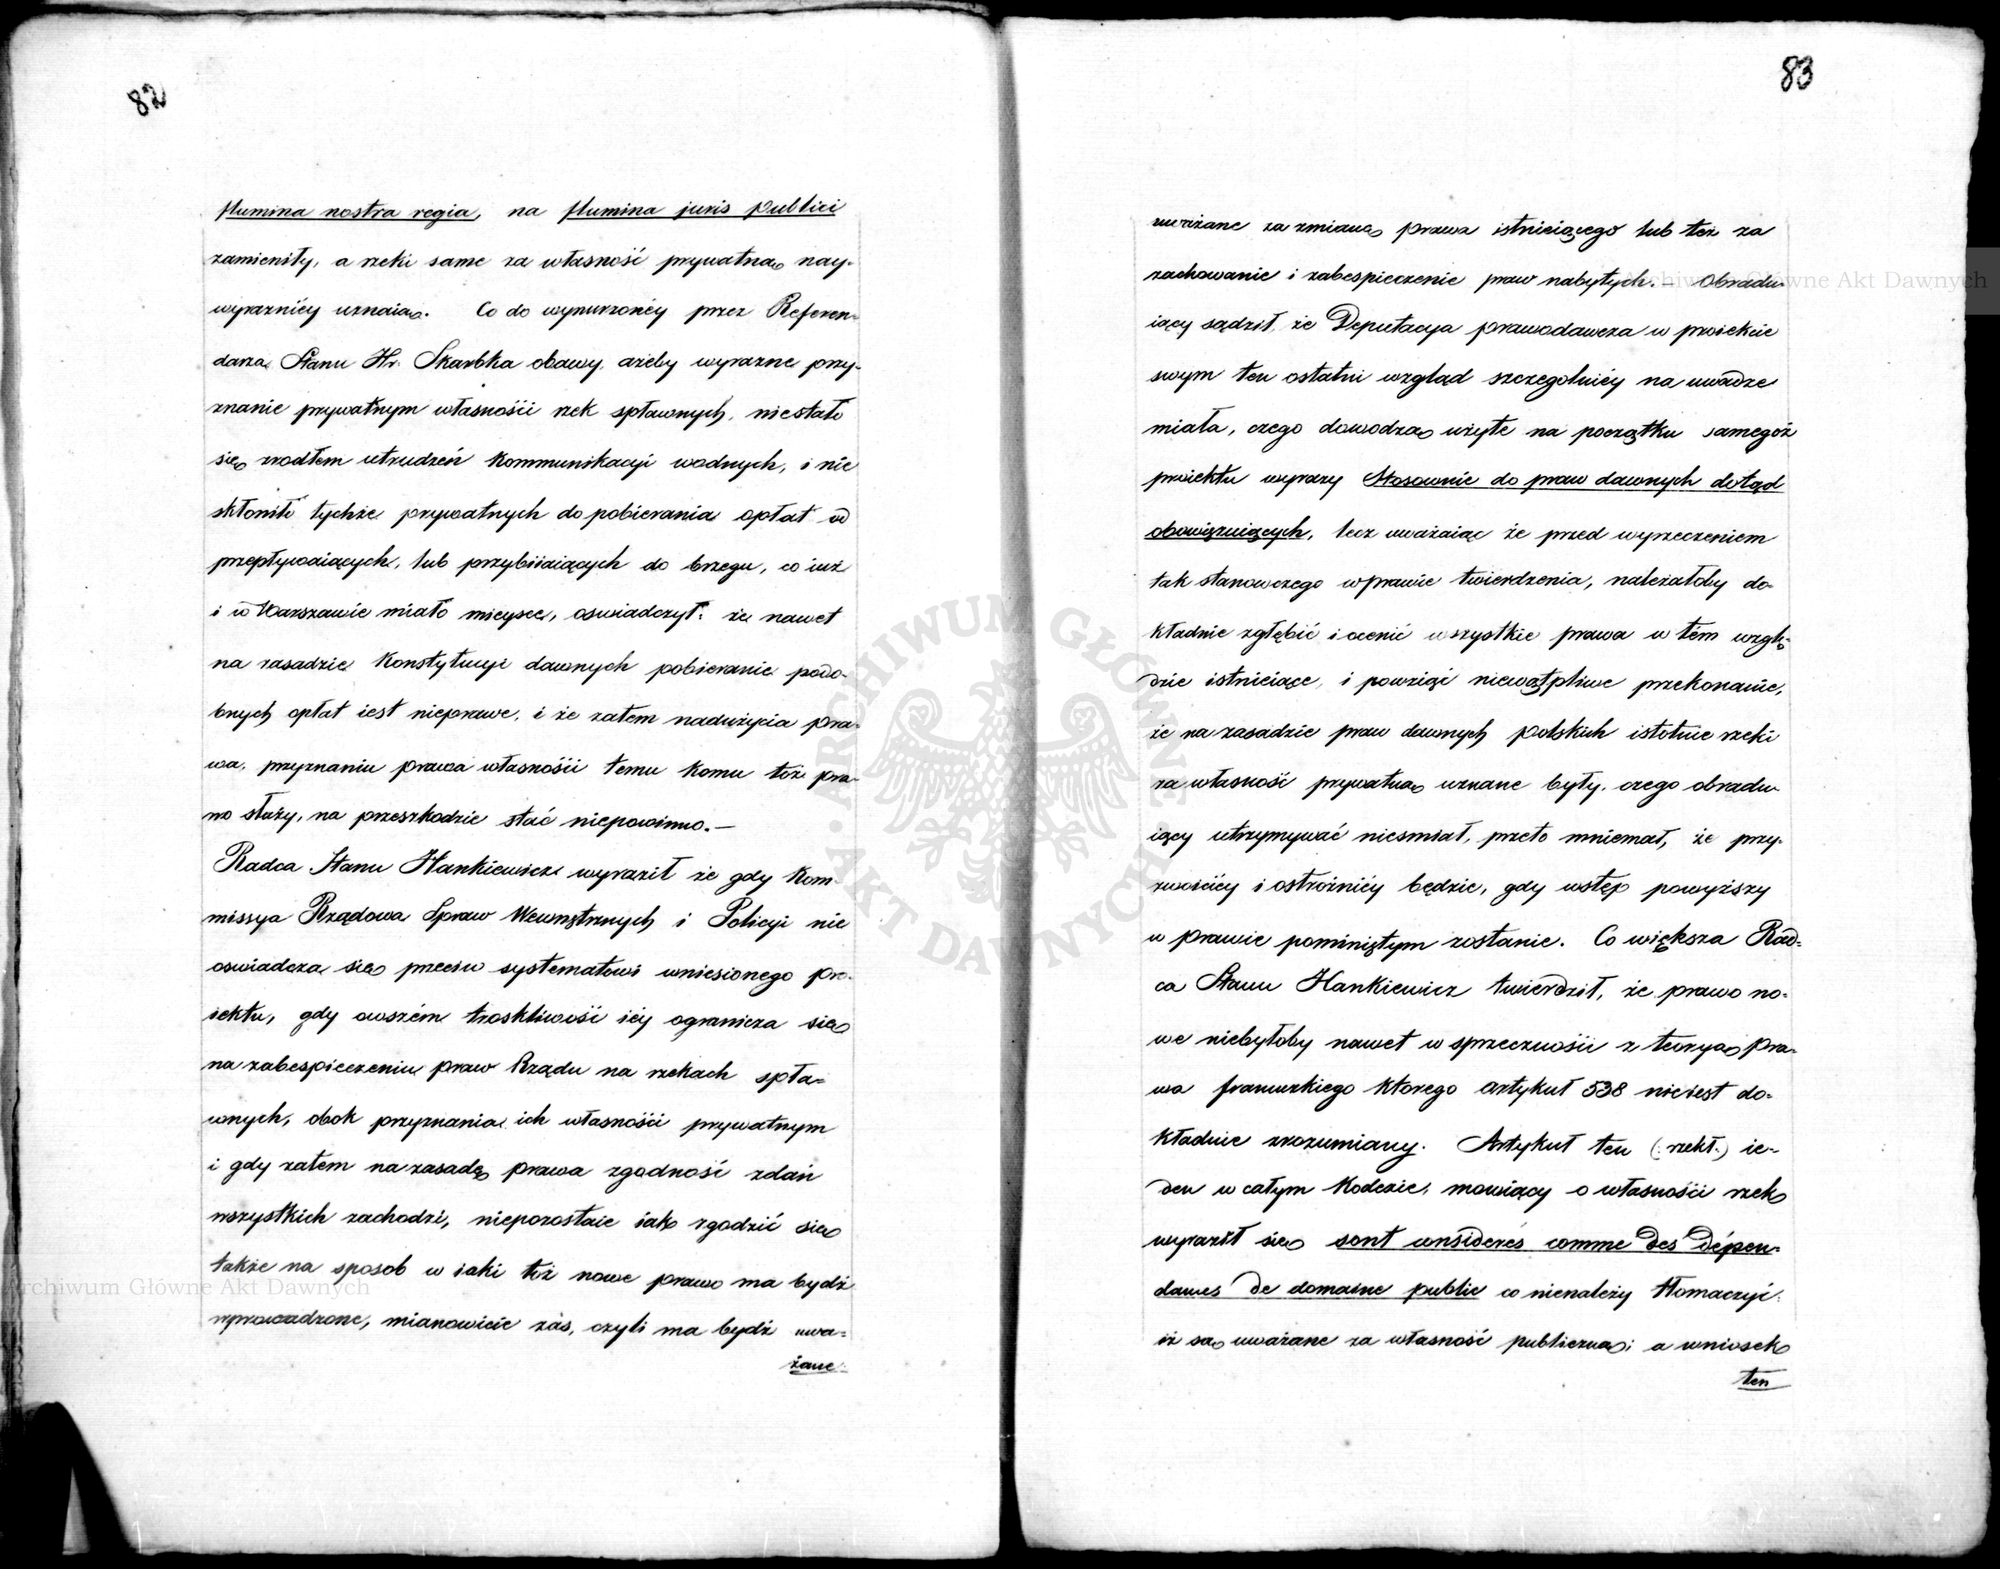 82
flumina nostra regia, na flumina juris publici
zamieniły, a rzeki same za własność prywatną nay-
wyrazniéy uznaią. Co do wynurzonéy przez Referen-
darza Stanu Hr. Skarbka obawy, ażeby wyrazne przy-
znanie prywatnym własności rzek spławnych, niestało
się zrodłem utrudzeń kommunikacyi wodnych, i nie
skłoniło tychże prywatnych do pobierania opłat od
przepływaiących, lub przybiiaiących do brzegu, co iuż
i w Warszawie miało mieysce, oswiadczył: że nawet
na zasadzie Konstytucyi dawnych pobieranie podo-
bnych opłat iest nieprawe, i że zatem nadużycia pra-
wa, przyznaniu prawa własności temu komu toż pra-
wo służy, na przeszkodzie stać niepowinno.—
Radca Stanu Hankiewicz wyraził że gdy Kom-
missya Rządowa Spraw Wewnętrznych i Policyi nie
oswiadcza się przeciw systematowi wniesionego pro-
iektu, gdy owszém troskliwość iéy ogranicza się
na zabespieczeniu praw Rządu na rzekach spła-
wnych, obok przyznania ich własności prywatnym
i gdy zatem na zasadę prawa zgodność zdań
wszystkich zachodzi, niepozostaie iak zgodzić się
także na sposob w iaki toż nowe prawo ma bydź
wprowadzone, mianowicie zaś, czyli ma bydź uwa-
żane
83
uważane za zmianę prawa istnieiącego lub też za
zachowanie i zabespieczenie praw nabytych. — Obradu-
iący sądził, że Deputacya prawodawcza w proiekcie
swym ten ostatni wzgląd szczegolniéy na uwadze
miała, czego dowodzą użyte na początku samegoż
proiektu wyrazy Stosownie do praw dawnych dotąd
obowiązuiących, lecz uważaiąc że przed wyrzeczeniem
tak stanowczego w prawie twierdzenia, należałoby do-
kładnie zgłębić i ocenić wszystkie prawa w tém wzglę-
dzie istnieiące, i powziąć niewątpliwe przekonanie,
że na zasadzie praw dawnych polskich istotnie rzeki
za własność prywatną uznane były, czego obradu-
iący utrzymywać niesmiał, przeto mniemał, że przy-
zwoiciéy i ostrożniéy będzie, gdy wstęp powyższy
w prawie pominiętym zostanie. Co większa Rad-
ca Stanu Hankiewicz twierdził, że prawo no-
we niebyłoby nawet w sprzeczności z teoryą pra-
wa francuzkiego ktorego artykuł 538 nieiest do-
kładnie zrozumiany. Artykuł ten (: rzekł :) ie-
den w całym Kodexie, mowiący o własności rzek
wyraził się sont considerés comme des dépen-
dances de domaine public co nienależy tłomaczyć:
iż są uważane za własność publiczną; a wniosek
ten
Archiwum Główne Akt Dawnych
Archiwum Główne Akt Dawnych
ARCHIWUM GŁÓWNE AKT DAWNYCH